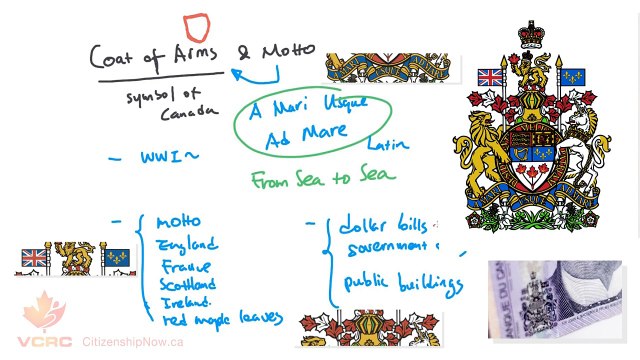 Coat of Arms & Motto
symbol of
Canada
A Mari Usque
Ad Mare
Latin
From Sea to Sea
- WWI~
- motto
England
France
Scottland
Ireland.
red maple leaves
- dollar bills
government
public buildings
BANQUE DU CAN
VCRC CitizenshipNow.ca